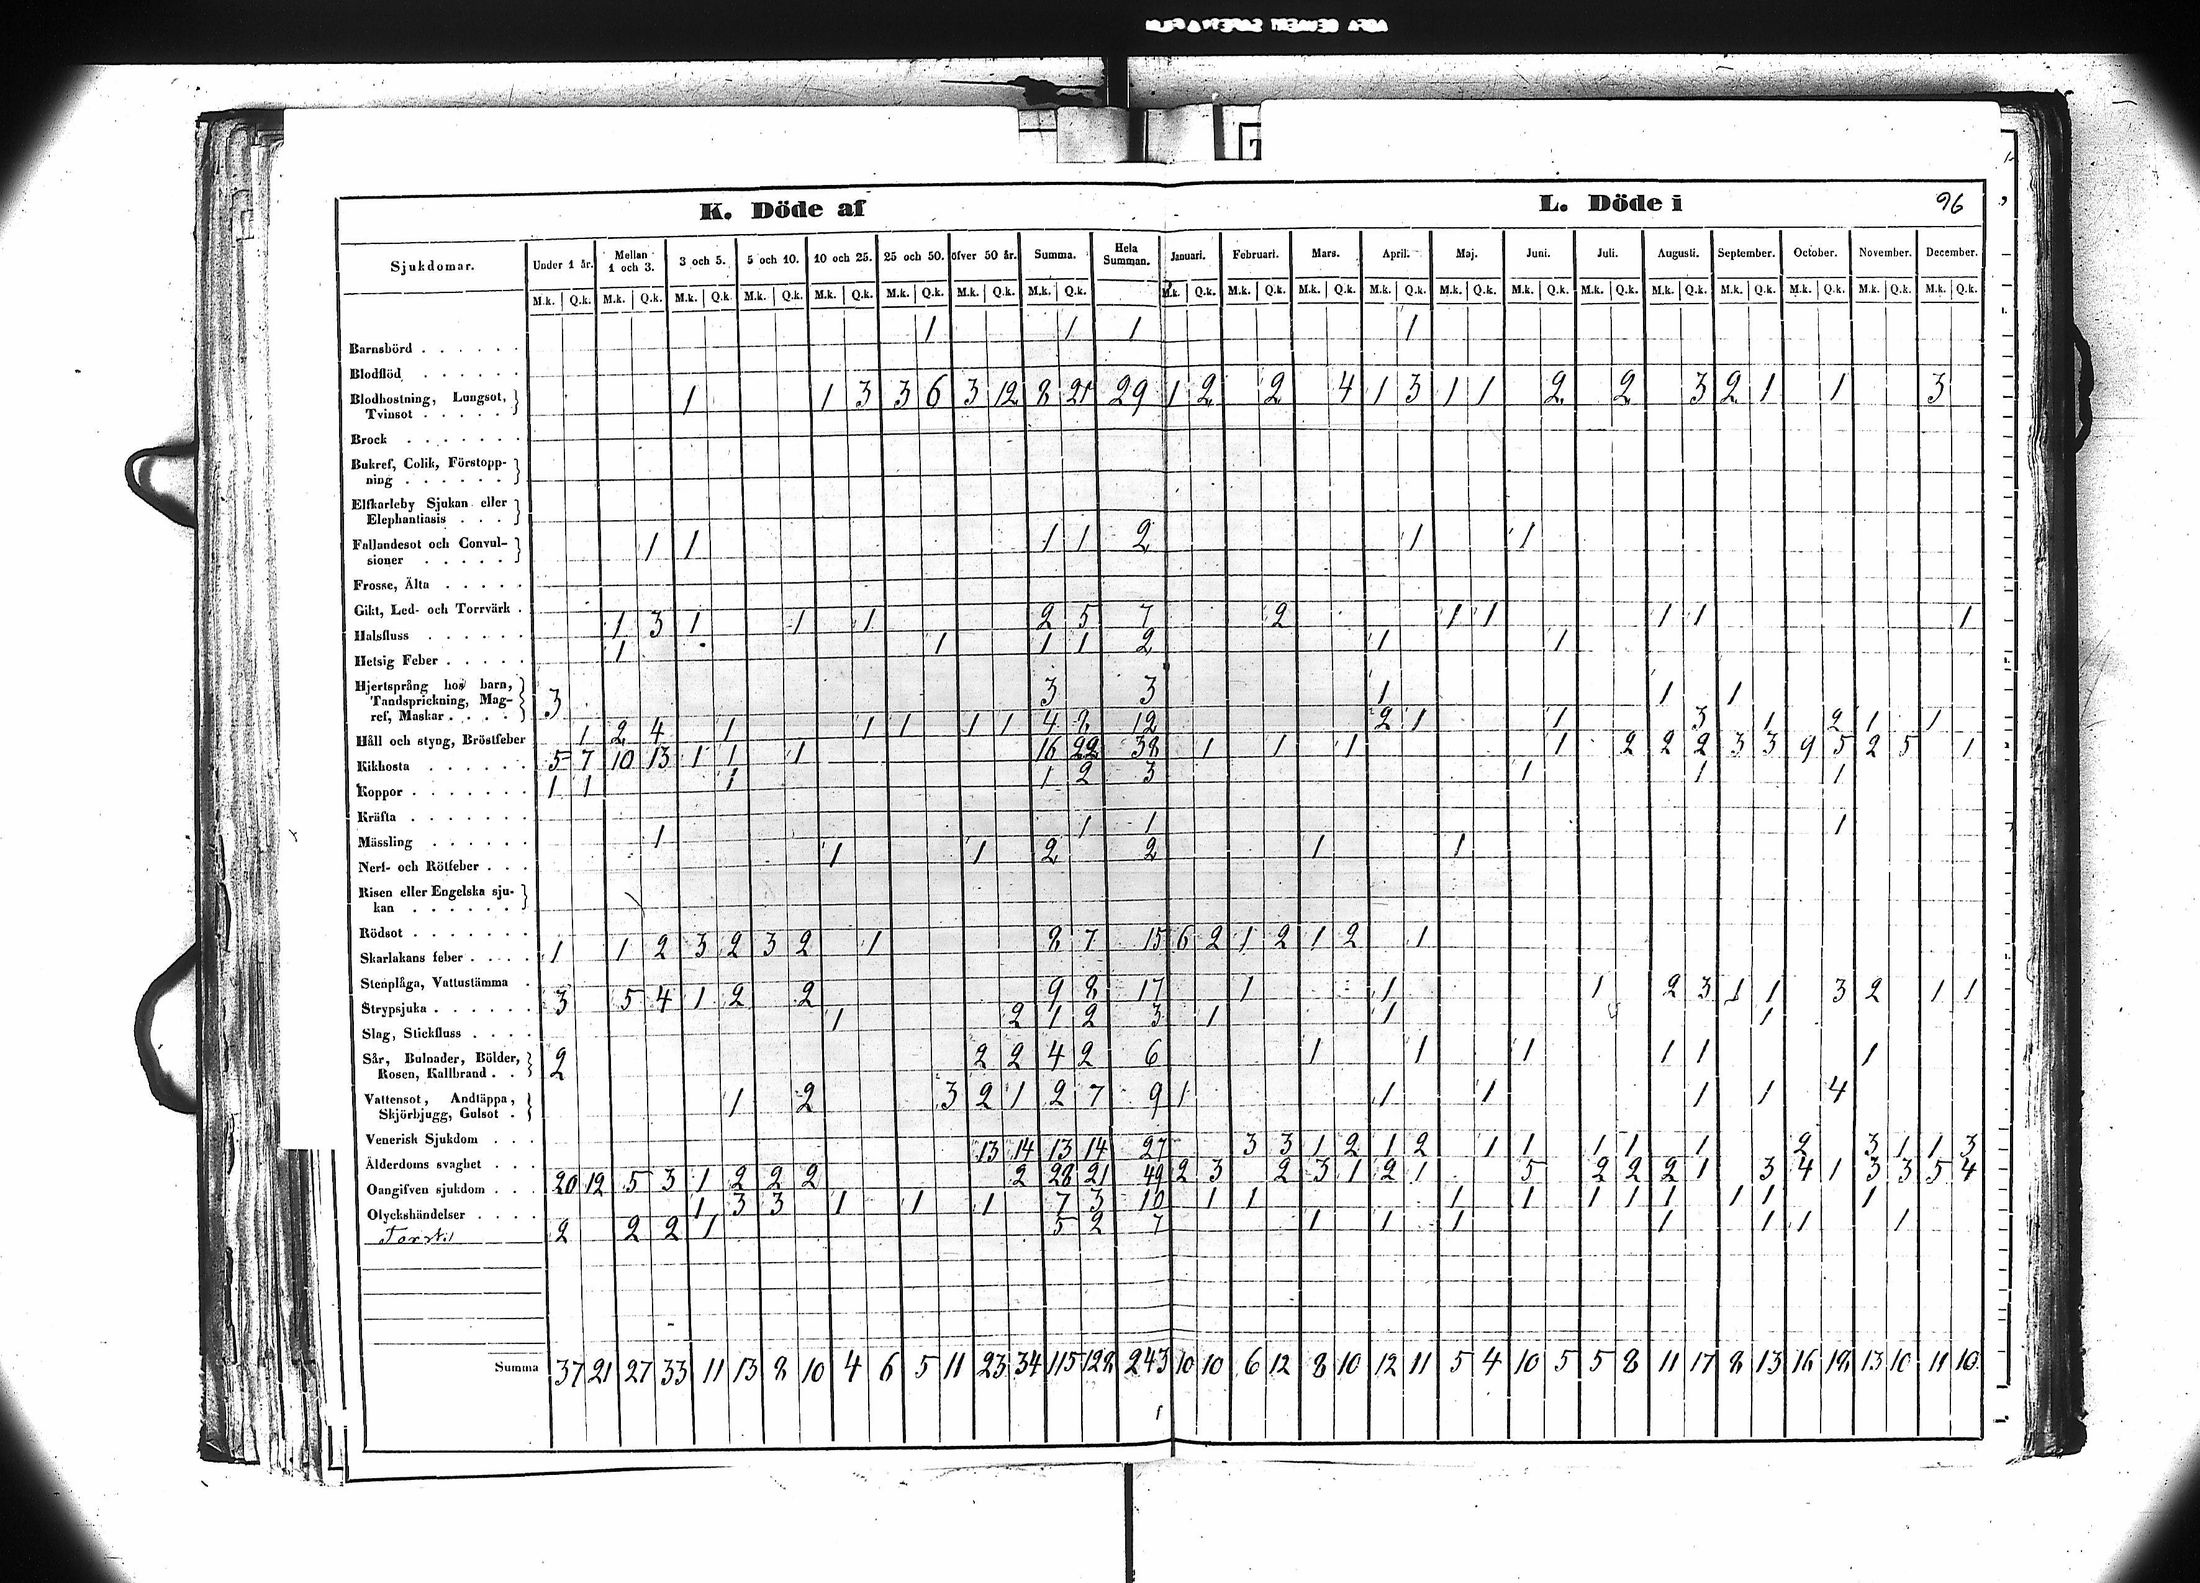 K. Döde af L. Döde i 96
Sjukdomar. Under 1 år. Mellan 1 och 3. 3 och 5. 5 och 10. 10 och 25. 25 och 50. öfver 50 år. Summa. Hela Summan. Januari. Februari. Mars. April. Maj. Juni. Juli. Augusti. September. October. November. December.
M.k. Q.k. M.k. Q.k. M.k. Q.k. M.k. Q.k. M.k. Q.k. M.k. Q.k. M.k. Q.k. M.k. Q.k. M.k. Q.k. M.k. Q.k. M.k. Q.k. M.k. Q.k. M.k. Q.k. M.k. Q.k. M.k. Q.k. M.k. Q.k. M.k. Q.k. M.k. Q.k. M.k. Q.k. M.k. Q.k.
Barnsbörd . . . . . . 1 1 1 1
Blodflöd . . . . . .
Blodhostning, Lungsot,
Tvinsot . . . . . 1 1 3 3 6 3 12 8 21 29 1 2 2 4 1 3 1 1 2 2 3 2 1 1 3
Brock . . . . . . .
Bukref, Colik, Förstopp-
ning . . . . . .
Elfkarleby Sjukan eller
Elephantiasis . . .
Fallandesot och Convul-
sioner . . . . . 1 1 1 1 2 1 1
Frosse, Älta . . . . .
Gikt, Led- och Torrvärk .
Halsfluss . . . . . . 1 3 1 1 1 2 5 7 2 1 1 1 1 1
Hetsig Feber . . . . . 1 1 1 1 2 1 1
Hjertsprång hos barn,
Tandsprickning, Mag-
ref, Maskar . . . . 3 3 3 1 1 1
Håll och styng, Bröstfeber 1 2 4 1 1 1 1 1 4 8 12 2 1 1 3 1 2 1 1
Kikhosta . . . . . . 5 7 10 13 1 1 1 16 22 38 1 1 1 1 2 2 2 3 3 9 5 2 5 1
Koppor . . . . . . . 1 1 1 1 2 3 1 1 1
Kräfta . . . . . . .
Mässling . . . . . . 1 1 1 1
Nerf- och Rötfeber . . . 1 1 2 2 1 1
Risen eller Engelska sju-
kan . . . . . .
Rödsot . . . . . . .
Skarlakans feber . . . . 1 1 2 3 2 3 2 1 8 7 15 6 2 1 2 1 2 1
Stenplåga, Vattustämma .
Strypsjuka . . . . . . 3 5 4 1 2 2 9 8 17 1 1 1 2 3 1 1 3 2 1 1
Slag, Stickfluss . . . . 1 2 1 2 3 1 1 1
Sår, Bulnader, Bölder,
Rosen, Kallbrand . . 2 2 2 4 2 6 1 1 1 1 1 1
Vattensot, Andtäppa,
Skjörbjugg, Gulsot . 1 2 3 2 1 2 7 9 1 1 1 1 1 4
Venerisk Sjukdom . . .
Ålderdoms svaghet . . . 13 14 13 14 27 3 3 1 2 1 2 1 1 1 1 1 2 3 1 1 3
Oangifven sjukdom . . . 20 12 5 3 1 2 2 2 2 28 21 49 2 3 2 3 1 2 1 5 2 2 2 1 3 4 1 3 3 5 4
Olyckshändelser . . . . 1 3 3 1 1 1 7 3 10 1 1 1 1 1 1 1 1 1 1
2 2 2 1 5 2 7 1 1 1 1 1 1 1
Summa 37 21 27 33 11 13 8 10 4 6 5 11 23 34 115 128 243 10 10 6 12 8 10 12 11 5 4 10 5 5 8 11 17 8 13 16 18 13 10 11 10